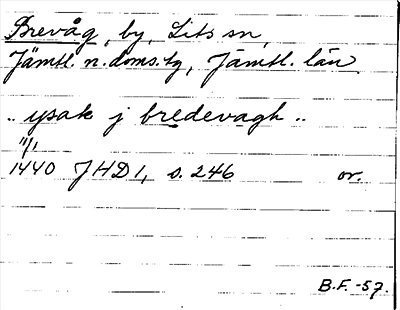 Brevåg, by, Lits sn,
Jämtl. n. doms.tg, Jämtl. län.
.. ysak j bredevagh ..
11/1
1440 JHD 1, s. 246 or.
B.F. -57.